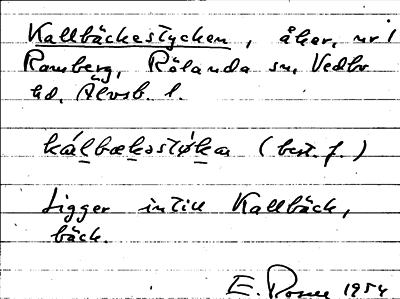 Kallbäckestycken, åker, nr 1
Ramberg, Rölanda sn, Vedbo
hd, Älvsb. l.
kálbækəstỳkən (best. f.)
Ligger intill Kallbäck,
bäck.
E. 1954